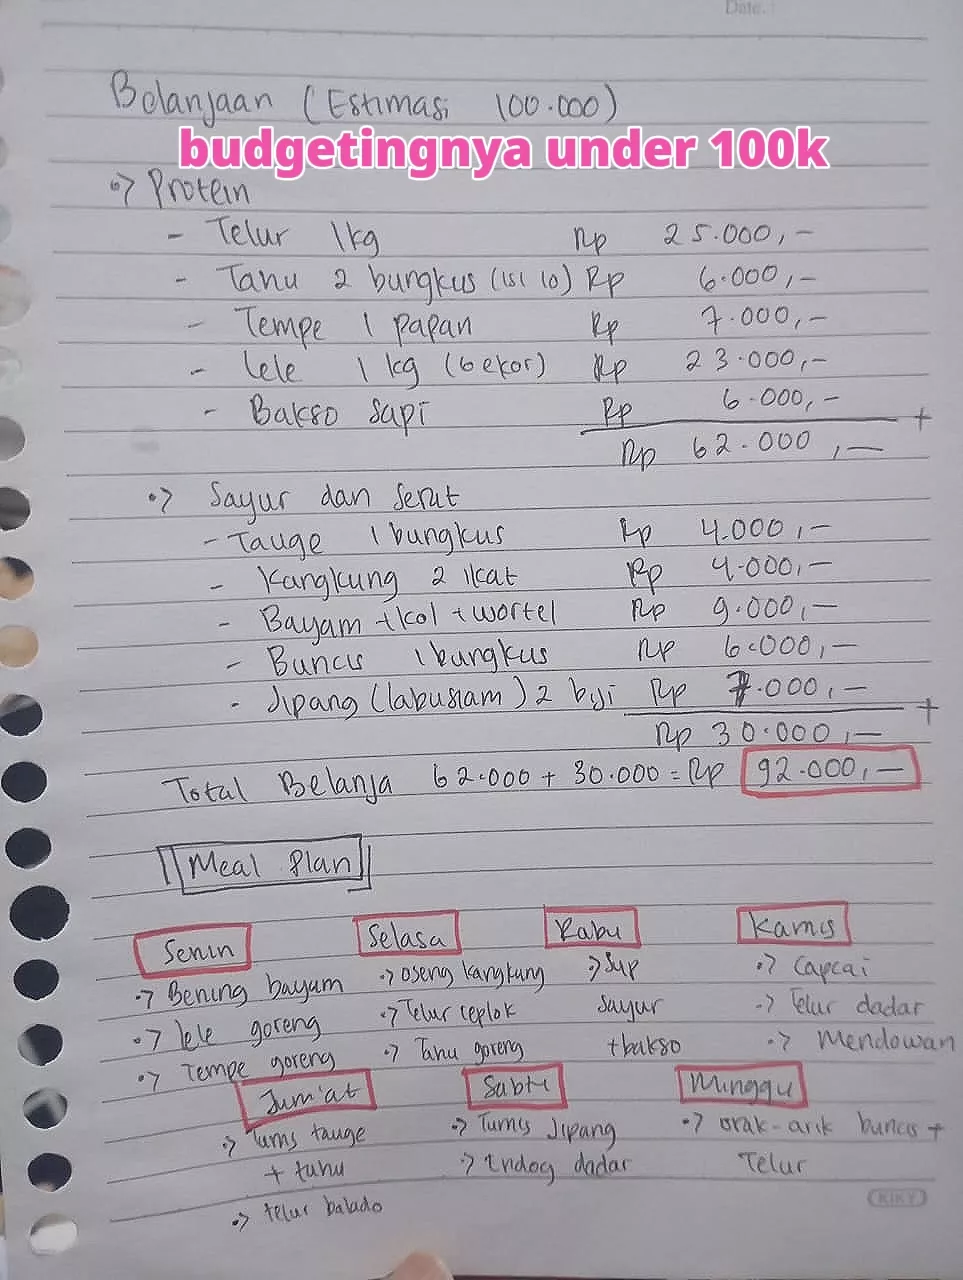 Date.
Bolanjaan (Estimasi 100.000)
budgetingnya under 100k
Protein
- Telur 1kg Rp 25.000,-
- Tahu 2 bungkus (isi 10) Rp 6.000,-
- Tempe 1 papan Rp 7.000,-
- Lele 1 kg (6 ekor) Rp 23.000,-
- Bakso sapi Rp 6.000,- +
Rp 62.000,-
Sayur dan Serat
- Tauge 1 bungkus Rp 4.000,-
- Kangkung 2 ikat Rp 4.000,-
- Bayam + kol + wortel Rp 9.000,-
- Buncis 1 bungkus Rp 6.000,-
- Jipang (labusiam) 2 biji Rp 7.000,- +
Rp 30.000,-
Total Belanja 62.000 + 30.000 = Rp 92.000,-
Meal Plan
Senin Selasa Rabu Kamis
Bening bayam Oseng kangkung Sup Capcai
lele goreng Telur ceplok Sayur Telur dadar
Tempe goreng Tahu goreng + bakso Mendowan
Jum'at Sabtu Minggu
Tumis tauge Tumis Jipang orak-arik buncis +
+ tahu Endog dadar Telur
telur balado
KIKY